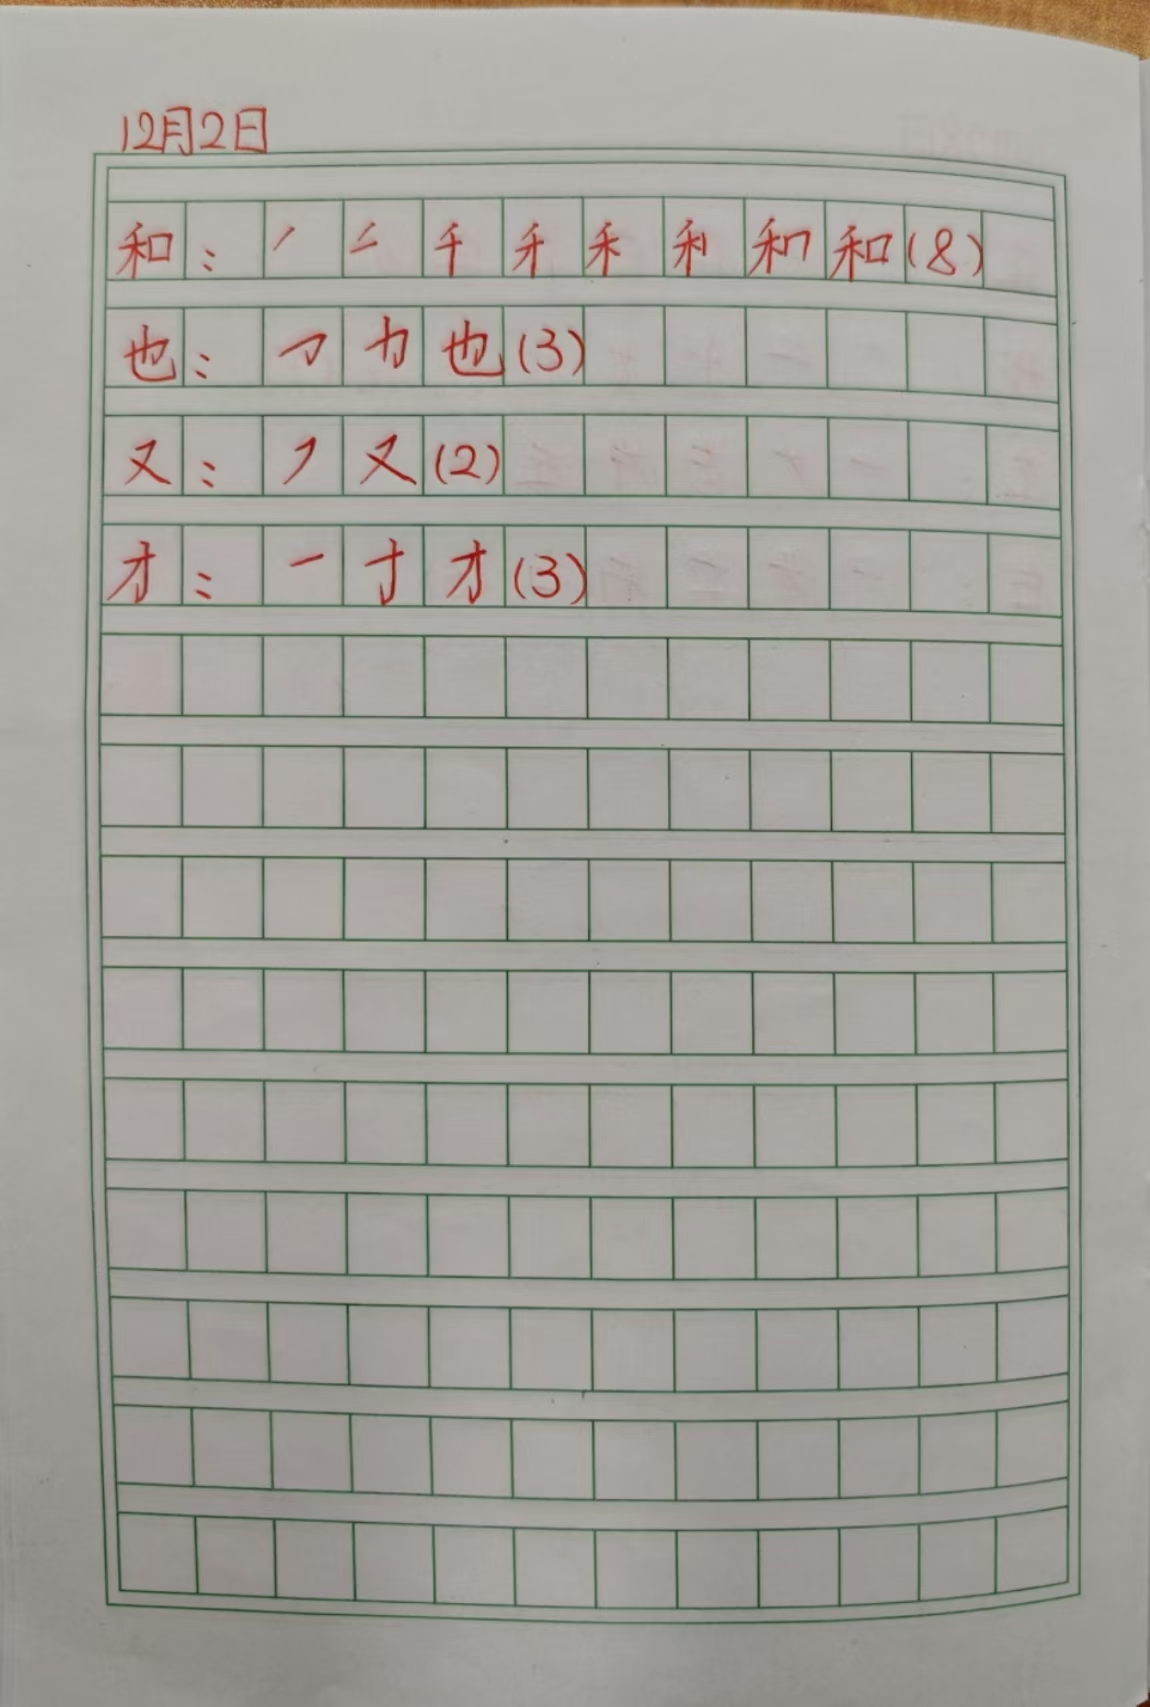 12月2日
和：丿 二 千 千 禾 利 和 和(8)
也：㇆ 力 也(3)
又：㇇ 又(2)
才：一 寸 才(3)